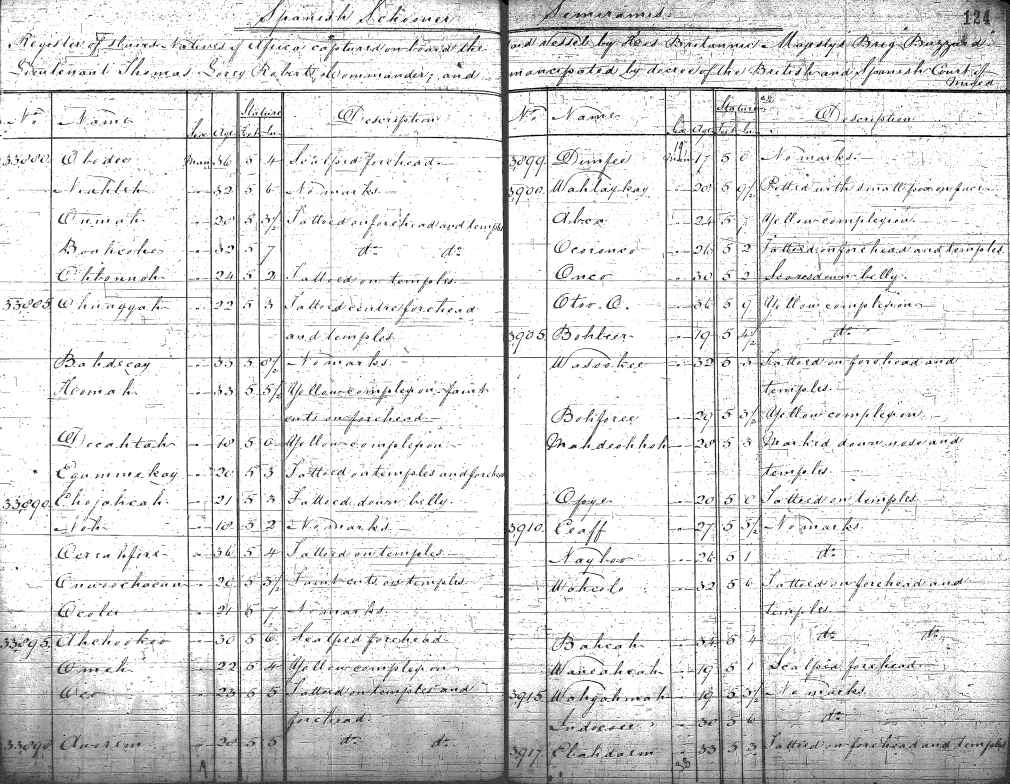 Spanish Schooner
Register of Slaves Natives of Africa captured on board the
Lieutenant Thomas Roberts Commander; and
No Name Sex Age Stature Feet In Description
33880 Man 36 5 4 Scalped forehead
32 5 6 No marks
Onmah 20 5 3½ Tattoed on forehead and temples
32 5 7 do do
24 5 2 Tattoed on temples
33885 22 5 3 Tattoed centre forehead
and temples
Bahdecay 33 5 0½ No marks
Heomah 33 5 5½ Yellow complexion Faint
cuts on forehead
Docahtah 18 5 0 Yellow complexion
Egummekay 20 5 3 Tattoed on temples and forehead
33890 Ehojahcah 21 5 3 Tattoed down belly
Noh 18 5 2 No marks
36 5 4 Tattoed on temples
26 5 3½ Faint cuts on temples
Ocolu 21 5 7 No marks
33895 Ahchookoo 30 5 6 Scalped forehead
Omeh 22 5 4 Yellow complexion
Oco 23 5 5 Tattoed on temples and
forehead
33898 20 5 5 do do
Semiramis 124
and vessel by Her Britannic Majestys Brig Buzzard
emancipated by decree of the British and Spanish Court of
Mixed
No Name Sex Age Stature Feet In Description
19
3899 Dimfee Man 17 5 0 No marks
3900 Wahlaykay 20 5 9½ Pitted with small pox on face
Abca 24 5 7 Yellow complexion
Ocoronco 26 5 2 Tattoed on forehead and temples
Onco 30 5 2 Scores down belly
Otoo. C. 36 5 9 Yellow complexion
3905 Bohbeer 19 5 4½ do
Wasookee 32 5 3 Tattoed on forehead and
temples
Bohforee 29 5 3½ Yellow complexion
Mahdeohhoh 28 5 3 Marked down nose and
temples
Ofoye 20 5 0 Tattoed on temples
3910 Ceaff 27 5 5½ No marks
Nayboo 26 5 1 do
Wohcolo 32 5 6 Tattoed on forehead and
temples
Bahcah 34 5 4 do do
Wancahcah 19 5 1 Scalped forehead
3915 Wahgahmah 19 5 3½ No marks
30 5 6 do
3917 Ebahdarm 33 5 3 Tattoed on forehead and temples
38